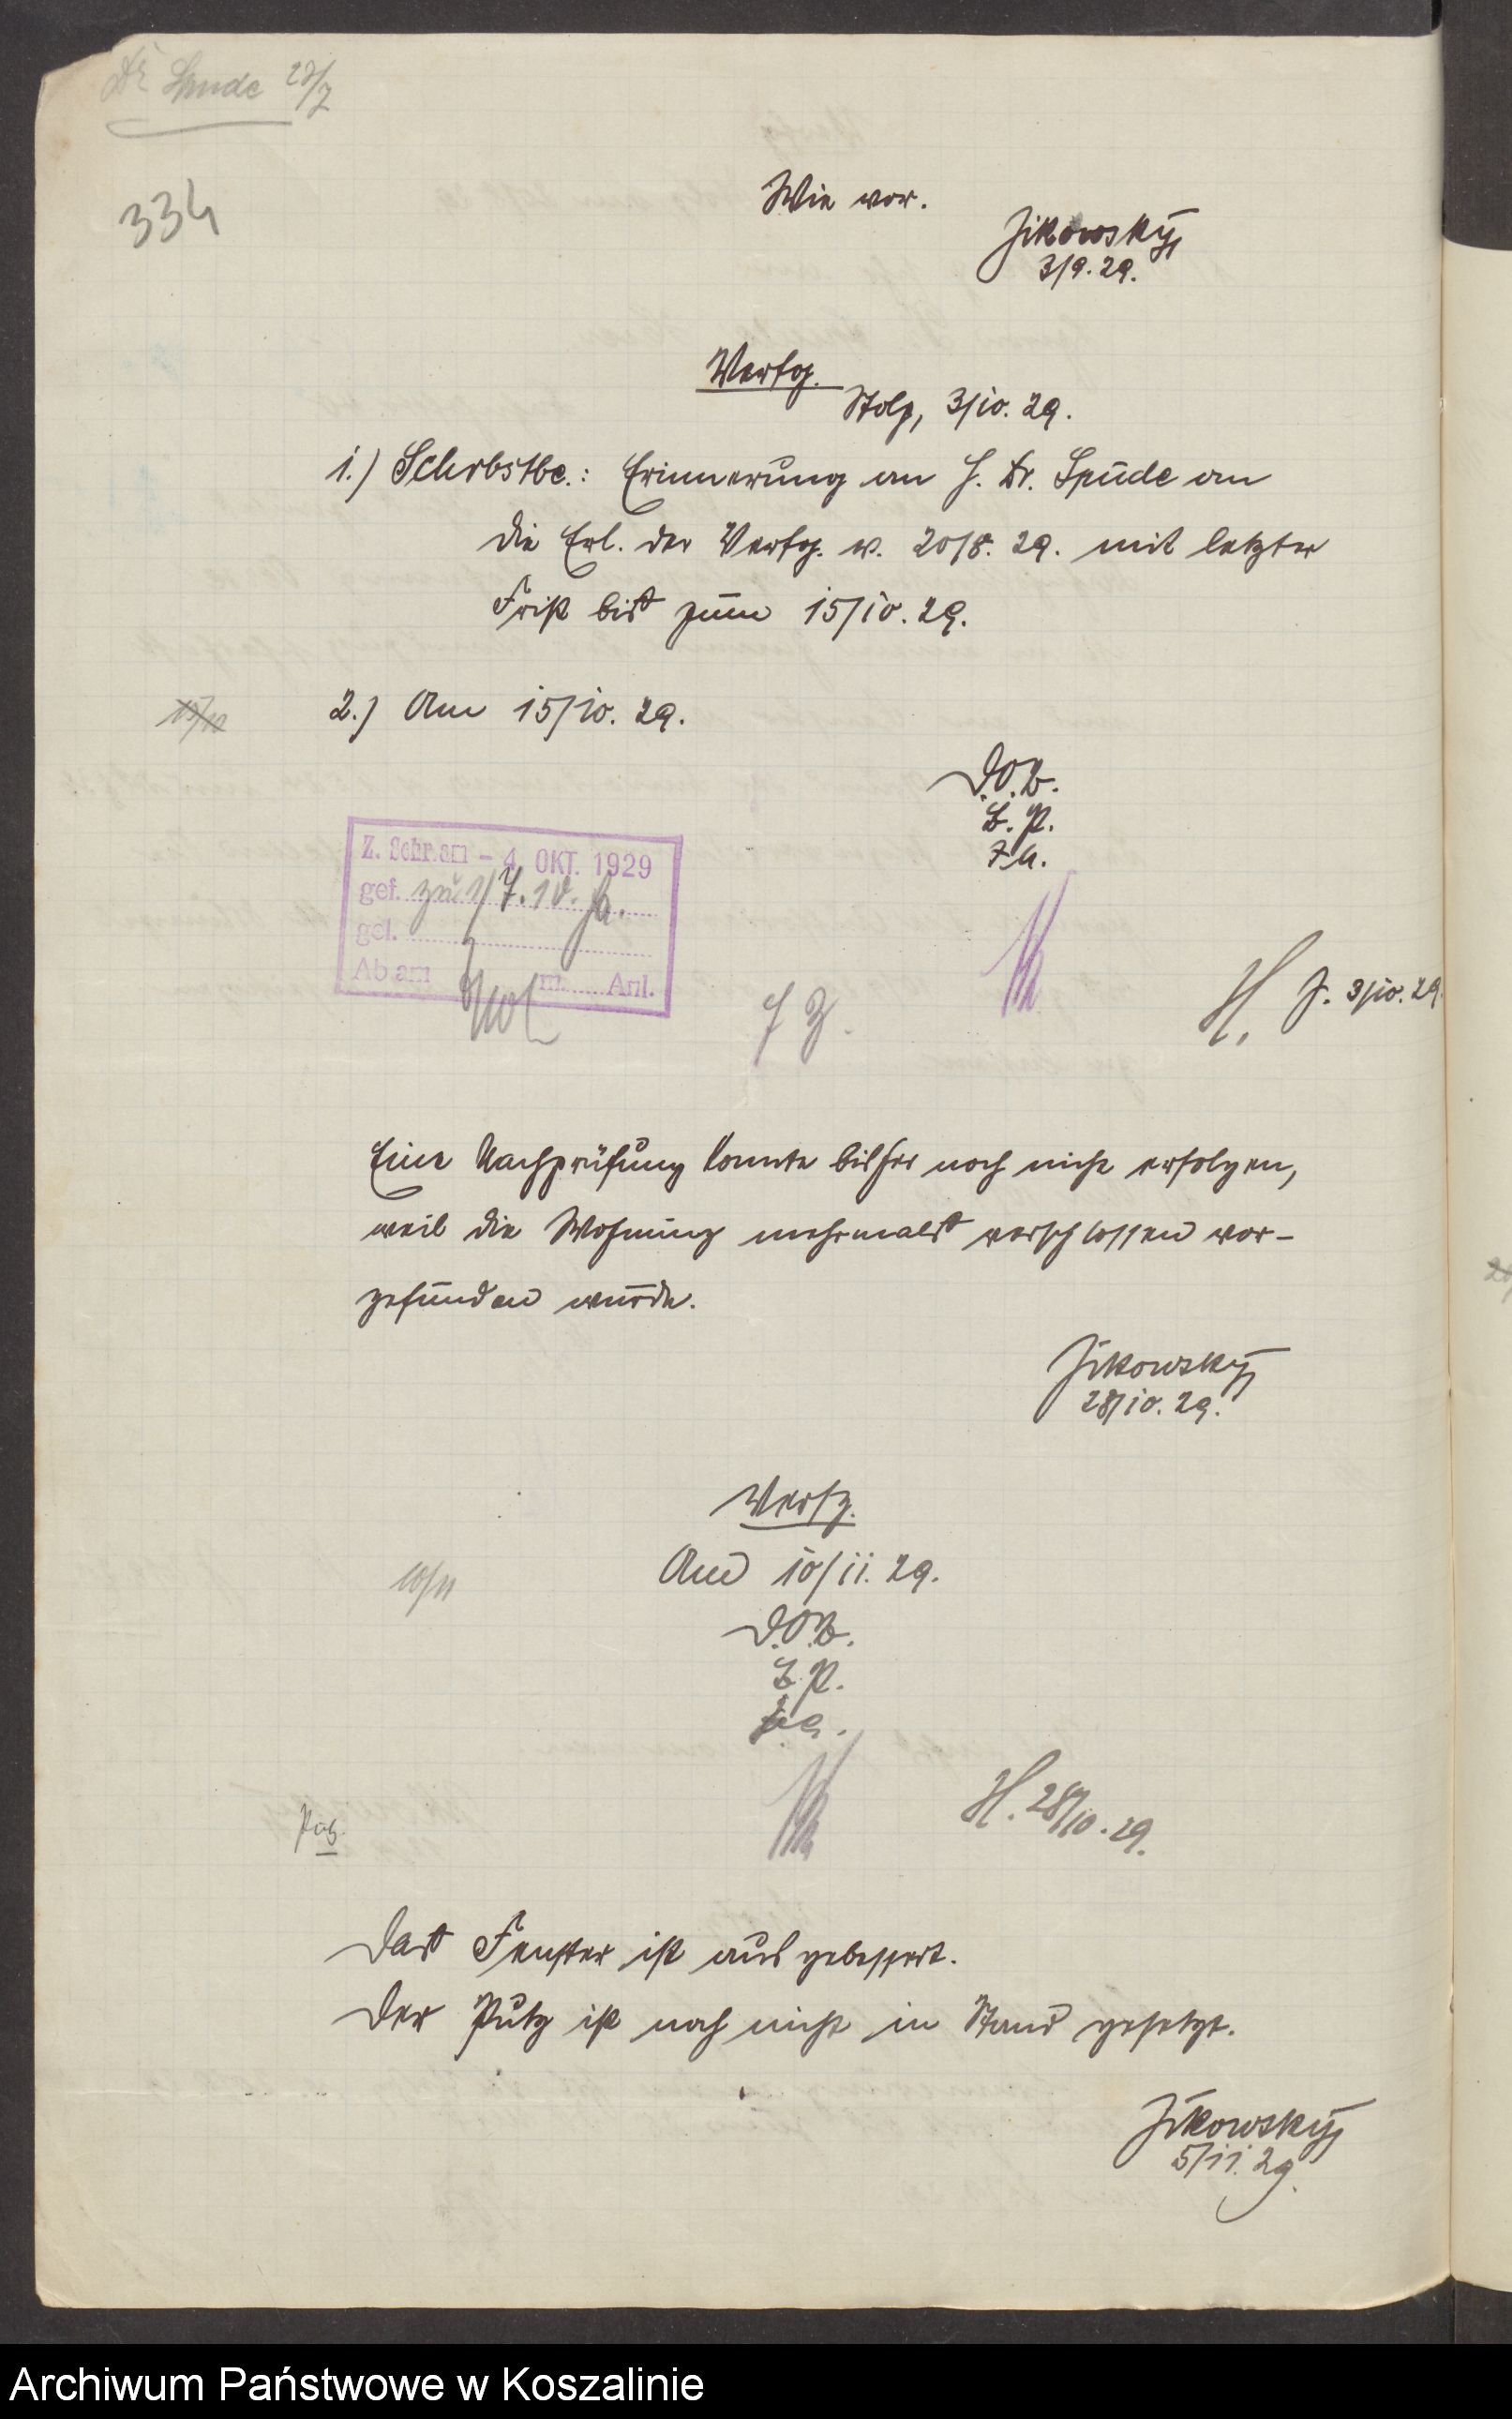 Dr Spude 27/7
334
Wie vor.
Jikowsky
3/9.29.
Verfg.
Stolp, 3/10.29.
1.) Schrbstbe.: Erinnerung an H. Dr. Spude an
die Erl. der Verfg. v. 20/8.29. mit letzter
Frist bis zum 15/10.29.
15/10
2.) Am 15/10.29.
D.O.B.
B.P.
Z. Schr. am - 4. OKT. 1929
gef. zu 1/ 7.10.
gel.
Ab am m. Anl.
H. J. 3/10.29.
Eine Nachprüfung konnte bisher noch nicht erfolgen,
weil die Wohnung mehrmals verschlossen vor-
gefunden wurde.
Jikowsky
28/10.29.
Verfg.
10/11
Am 10/11.29.
D.O.B.
B.P.
H. 28/10.29.
Das Fenster ist ausgebessert.
Der Putz ist noch nicht in Stand gesetzt.
Jikowsky
5/11.29.
Archiwum Państwowe w Koszalinie